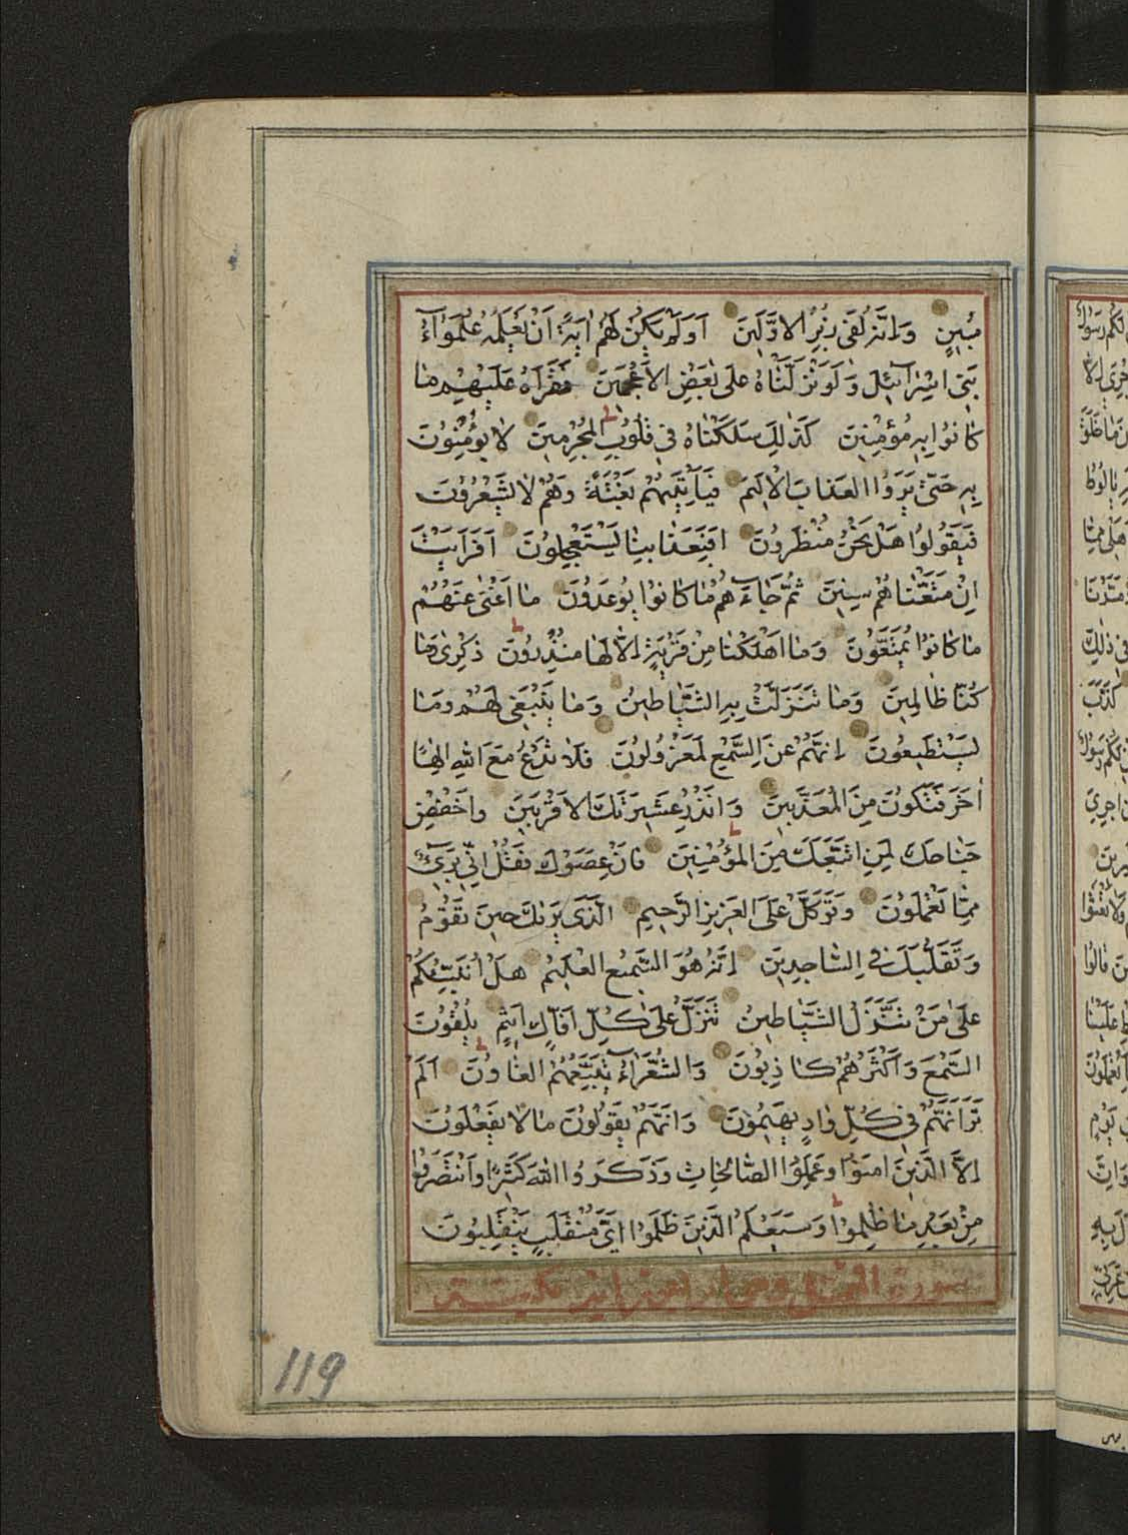 مُبِينٍ وَاِنَّهُ لَفِى زُبُرِ الْاَوَّلِينَ اَوَلَمْ يَكُنْ لَهُمْ اٰيَةً اَنْ يَعْلَمَهُ عُلَمٰۤؤُا
بَنِى اِسْرَآئِلَ وَلَوْ نَزَّلْنَاهُ عَلٰى بَعْضِ الْاَعْجَمِينَ فَقَرَاَهُ عَلَيْهِمْ مٰا
كٰانُوا بِهِ مُؤْمِنِينَ كَذٰلِكَ سَلَكْنٰاهُ فِى قُلُوبِ الْمُجْرِمِينَ لٰا يُؤْمِنُونَ
بِهِ حَتّٰى يَرَوُا الْعَذٰابَ الْاَلِيمَ فَيَأْتِيَهُمْ بَغْتَةً وَهُمْ لٰا يَشْعُرُونَ
فَيَقُولُوا هَلْ نَحْنُ مُنْظَرُونَ اَفَبِعَذٰابِنٰا يَسْتَعْجِلُونَ اَفَرَاَيْتَ
اِنْ مَتَّعْنٰاهُمْ سِنِينَ ثُمَّ جٰاءَهُمْ مٰا كٰانُوا يُوعَدُونَ مٰا اَغْنٰى عَنْهُمْ
مٰا كٰانُوا يُمَتَّعُونَ وَمٰا اَهْلَكْنٰا مِنْ قَرْيَةٍ اِلّٰا لَهٰا مُنْذِرُونَ ذِكْرٰى وَمٰا
كُنّٰا ظٰالِمِينَ وَمٰا تَنَزَّلَتْ بِهِ الشَّيٰاطِينُ وَمٰا يَنْبَغِى لَهُمْ وَمٰا
يَسْتَطِيعُونَ اِنَّهُمْ عَنِ السَّمْعِ لَمَعْزُولُونَ فَلٰا تَدْعُ مَعَ اللّٰهِ اِلٰهًا
اٰخَرَ فَتَكُونَ مِنَ الْمُعَذَّبِينَ وَاَنْذِرْ عَشِيرَتَكَ الْاَقْرَبِينَ وَاخْفِضْ
جَنٰاحَكَ لِمَنِ اتَّبَعَكَ مِنَ الْمُؤْمِنِينَ فَاِنْ عَصَوْكَ فَقُلْ اِنِّى بَرِىءٌ
مِمّٰا تَعْمَلُونَ وَتَوَكَّلْ عَلَى الْعَزِيزِ الرَّحِيمِ الَّذِى يَرٰىكَ حِينَ تَقُومُ
وَتَقَلُّبَكَ فِى السّٰاجِدِينَ اِنَّهُ هُوَ السَّمِيعُ الْعَلِيمُ هَلْ اُنَبِّئُكُمْ
عَلٰى مَنْ تَنَزَّلُ الشَّيٰاطِينُ تَنَزَّلُ عَلٰى كُلِّ اَفّٰاكٍ اَثِيمٍ يُلْقُونَ
السَّمْعَ وَاَكْثَرُهُمْ كٰاذِبُونَ وَالشُّعَرٰاءُ يَتَّبِعُهُمُ الْغٰاوُنَ اَلَمْ
تَرَ اَنَّهُمْ فِى كُلِّ وٰادٍ يَهِيمُونَ وَاَنَّهُمْ يَقُولُونَ مٰا لٰا يَفْعَلُونَ
اِلَّا الَّذِينَ اٰمَنُوا وَعَمِلُوا الصّٰالِحٰاتِ وَذَكَرُوا اللّٰهَ كَثِيرًا وَانْتَصَرُوا
مِنْ بَعْدِ مٰا ظُلِمُوا وَسَيَعْلَمُ الَّذِينَ ظَلَمُوا اَىَّ مُنْقَلَبٍ يَنْقَلِبُونَ
سورة النمل
119